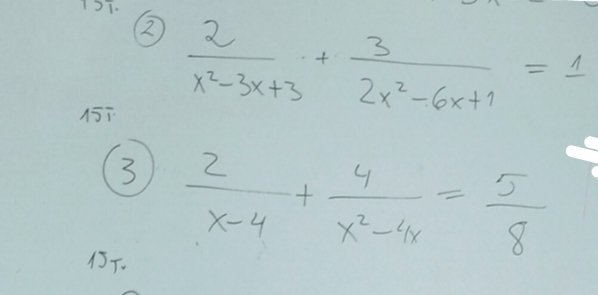 15т.
② 2/(x²-3x+3) + 3/(2x²-6x+1) = 1
15т
③ 2/(x-4) + 4/(x²-4x) = 5/8
15т.